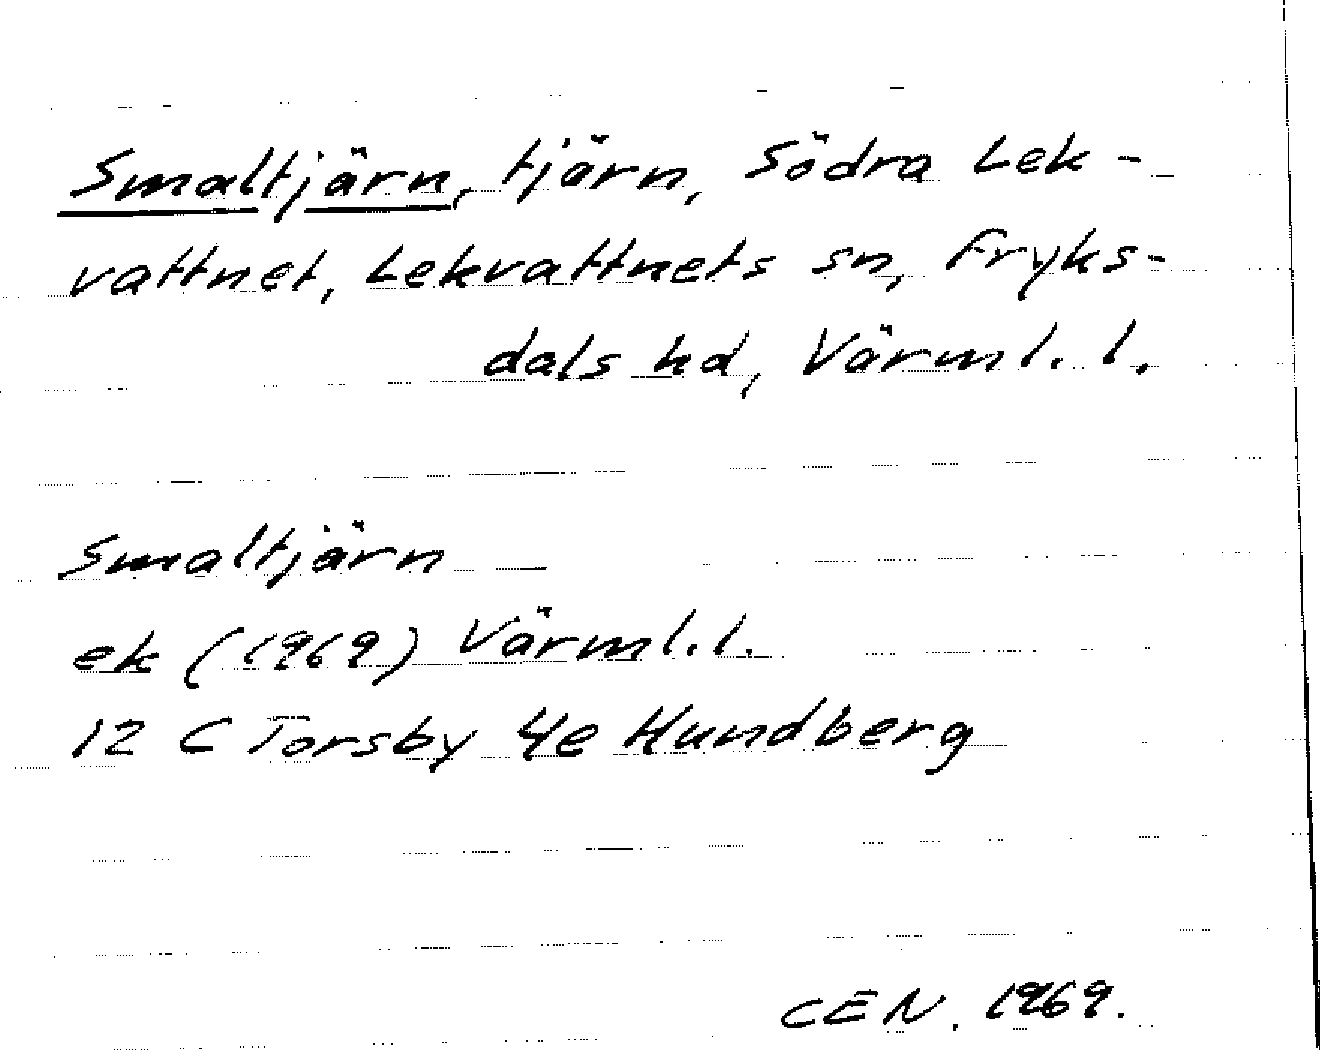 Smaltjärn, tjärn, Södra Lek-
vattnet, Lekvattnets sn, Fryks-
dals hd, Värml. l.
Smaltjärn
ek (1969) Värml. l.
12 C Torsby 4e Hundberg
CEN. 1969.